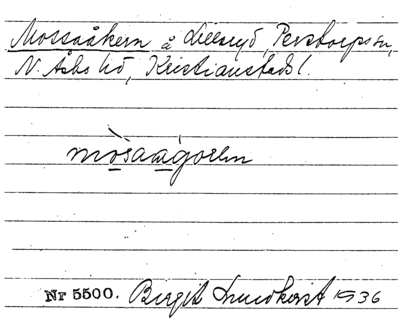 Mossaåkern å Lillaryd, Perstorps sn,
N. Åsbo hd, Kristianstads l.
Nr 5500. Birgit Lundkvist 1936